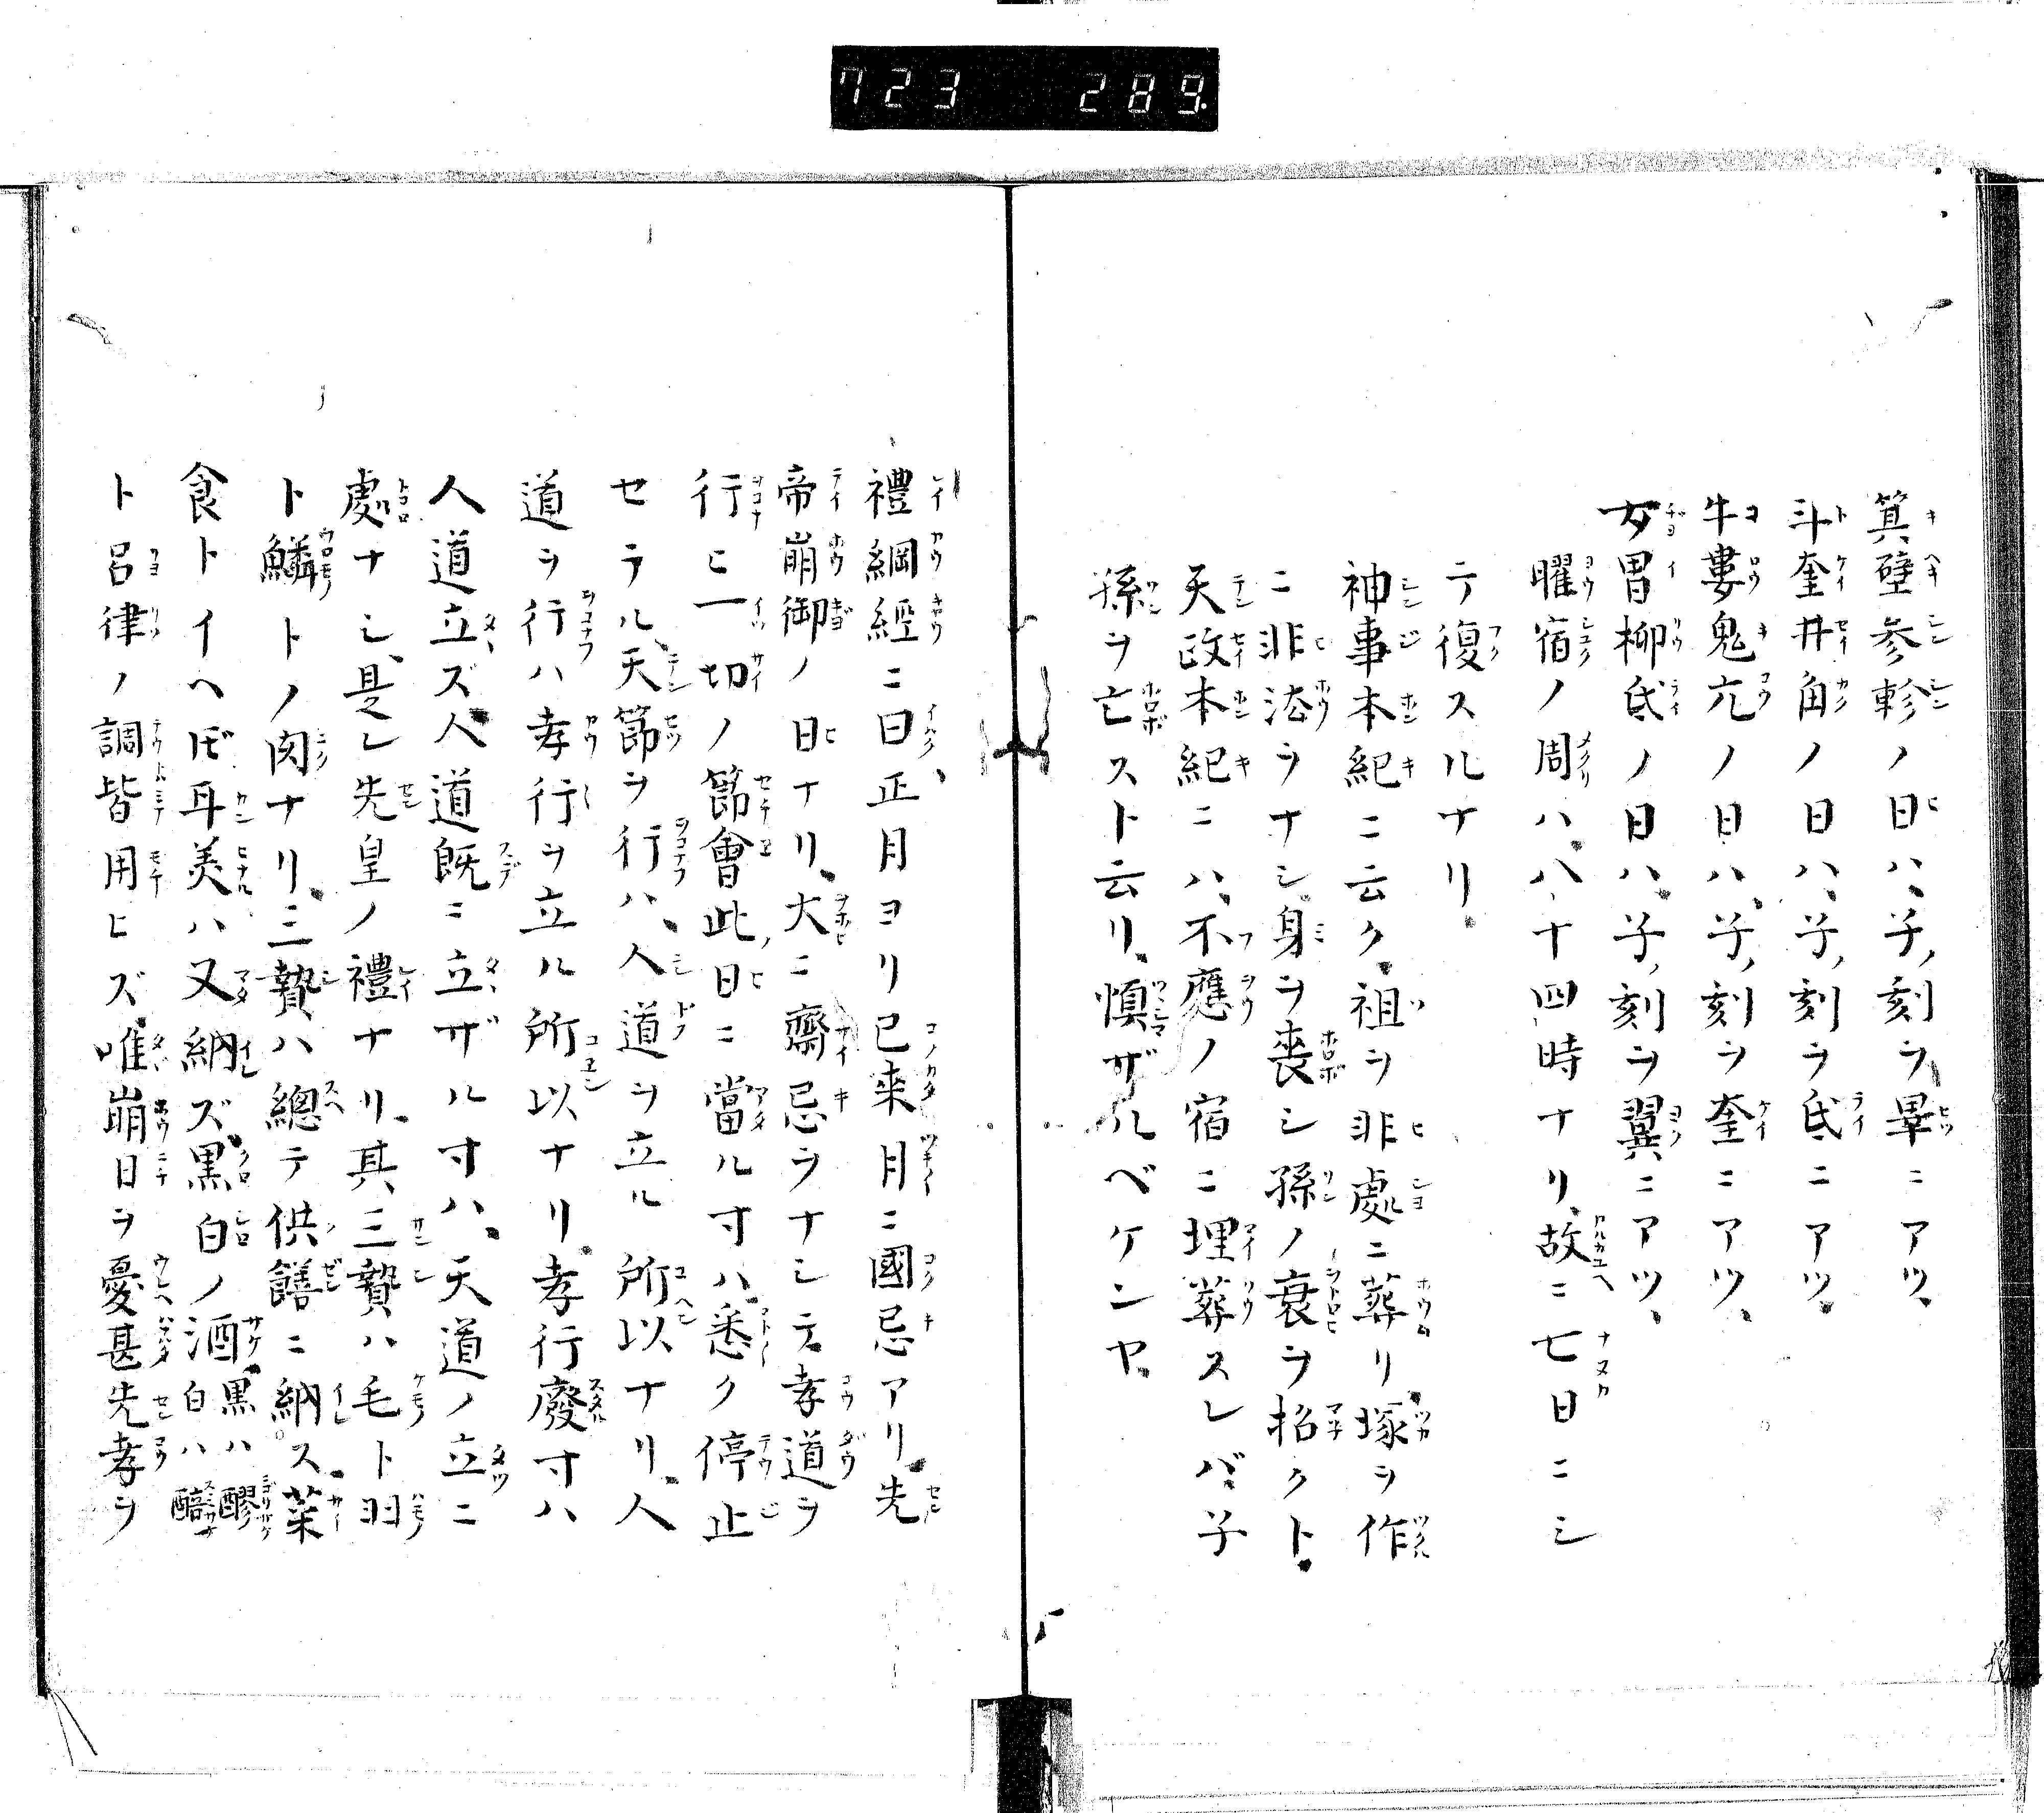 723 289.
箕壁参軫ノ日ハ、子ノ刻ヲ畢ニアツ、
斗奎井角ノ日ハ、子ノ刻ヲ氐ニアツ、
牛婁鬼亢ノ日ハ、子ノ刻ヲ奎ニアツ、
女胃柳氐ノ日ハ、子ノ刻ヲ翼ニアツ、
曜宿ノ周ハ、八十四時ナリ、故ニ七日ニシ
テ復スルナリ、
神事本紀ニ云ク、祖ヲ非處ニ葬リ、塚ヲ作
ニ非法ヲナシ、身ヲ喪シ孫ノ衰ヲ招クト、
天政本紀ニハ、不應ノ宿ニ埋葬スレバ、子
孫ヲ亡スト云リ、慎ザルベケンヤ、
禮綱經ニ曰、正月ヨリ已来月ニ國忌アリ、先
帝崩御ノ日ナリ、大ニ齋忌ヲナシテ、孝道ヲ
行ヒ一切ノ節會此ノ日ニ當ル寸ハ、悉ク停止
セラル、天節ヲ行ハ、人道ヲ立ル所以ナリ、人
道ヲ行ハ孝行ヲ立ル所以ナリ、孝行廢寸ハ
人道立ズ、人道既ニ立ザル寸ハ、天道ノ立ニ
處ナシ、是レ先皇ノ禮ナリ、其三贄ハ毛ト羽
ト鱗トノ肉ナリ、三贄ハ總テ供饍ニ納ス、菜
食トイヘ𪜈耳美ハ又納ズ、黒白ノ酒、黒ハ醪白ハ醅
ト呂律ノ調皆用ヒズ、唯崩日ヲ憂甚先孝ヲ